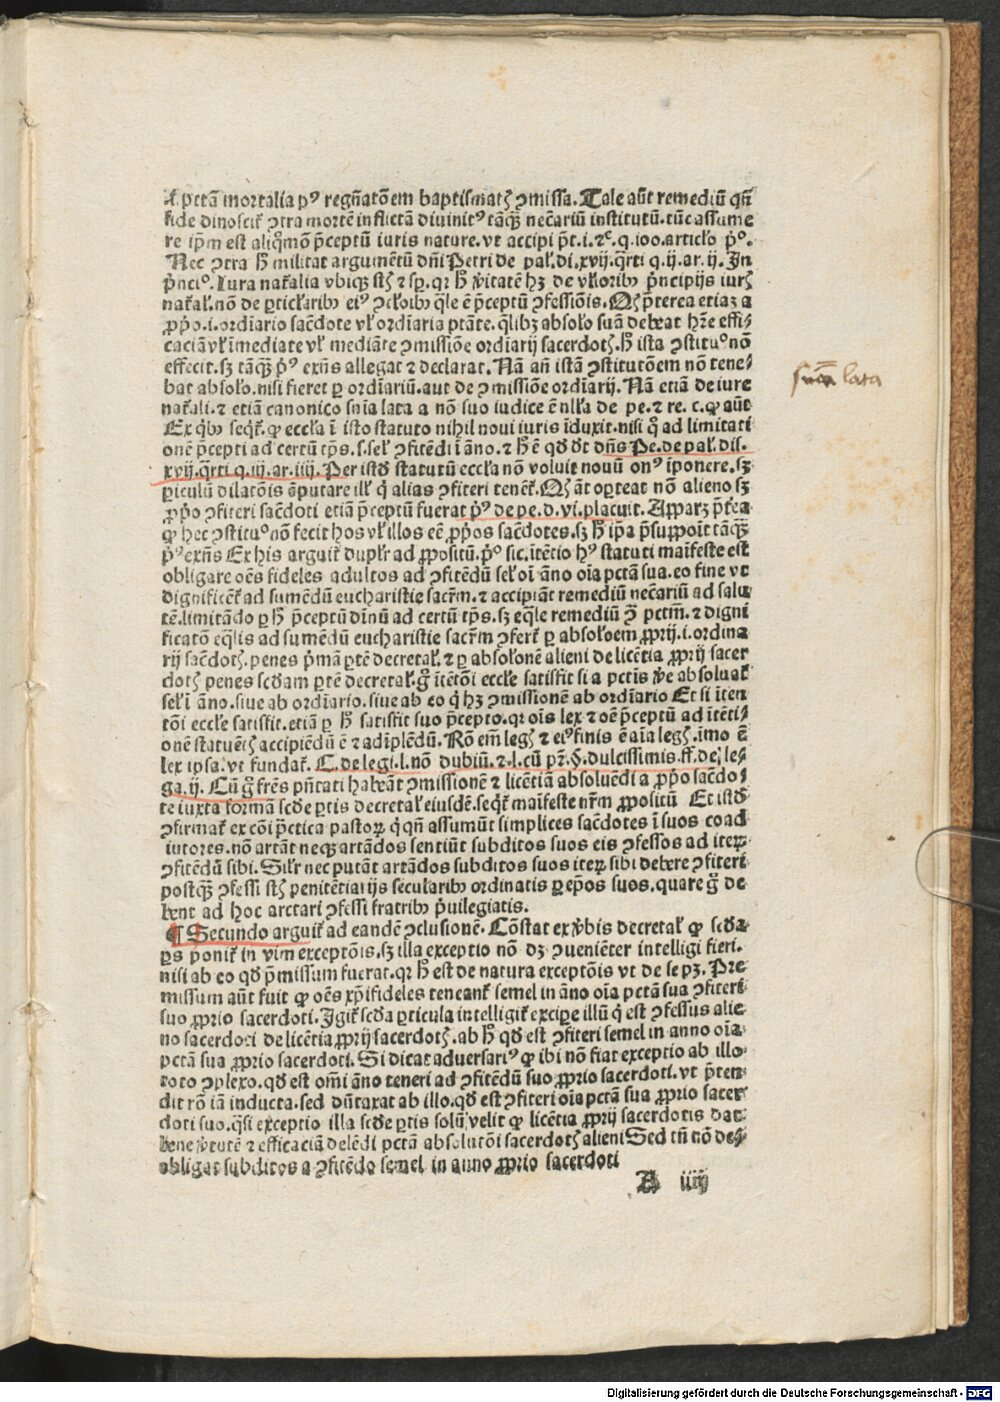 A pctā mortalia pꝰ regn̄atōem baptismatꝭ ꝯmissa. Tale aūt remediū qn̄
fide dinoscit̄ ꝯtra mortē inflictā diuinitꝰ tāqꝫ nec̄ariū institutū. tūc assume
re ip̄m est aliqͦmō p̄ceptū iuris nature. vt accipi p̄t. i. ⁊ᶜ. q. 100. articl̓o p̓ᵒ.
Nec ꝯtra h̓ militat argumentū dn̄i Petri de pal̓. di. xvij. qr̄ti q. ij. ar. ij. In
p̓nciᵒ. Iura nat̄alia vbiqꝫ st̄ꝭ ⁊ sp̄. qꝛ h̓ v̓itatē hꝫ de vl̓toribꝰ p̓ncipijs iurꝭ
nat̄al̓. nō de ꝑticl̓aribꝰ eiꝰ ꝯcl̓oibꝰ qͣle ē p̄ceptū ꝯfessiōis. Qꝭ p̄terea etiaꝫ a
ꝓp̓o. i. ordīario sac̄dote vl̓ ordīaria ptāte. qͥlibꝫ absol̓o suā debeat hr̄e effi⸗
caciā vl̓ īmediate vl̓ mediāte ꝯmissiōe ordiarij sacerdotꝭ. h̓ ista ꝯstituᵒ nō
effecit. sꝫ tāqꝫ p̓ꝰ exn̄s allegat ⁊ declarat. Nā an̄ istā ꝯstitutōem nō tene⸗
bat absol̓o. nisi fieret ꝑ ordīariū. aut de ꝯmissiōe ordīarij. Nā etiā de iure
nat̄ali. ⁊ etiā canonico sn̄ia lata a nō suo iudice ē nl̓la de pe. ⁊ re. c. ꝙ aūt
Ex qͥbꝰ seqͥt̄. ꝙ eccl̓a ī isto statuto nihil noui iuris īduxit. nisi qͦ ad limitati
onē p̄cepti ad certū tp̄s. s. sel̓ ꝯfitēdi ī āno. ⁊ h̓ ē qd̓ dt̓ dn̄s Pe. de pal. dis.
xvij. qr̄ti q. iij. ar. iiij. Per istd̓ statutū eccl̓a nō voluit nouū onꝰ īponere. sꝫ
ꝑiculū dilatōis āputare ill̓ qͥ alias ꝯfiteri tenet̄. Qꝭ āt oꝑteat nō alieno sꝫ
ꝓp̓o ꝯfiteri sac̄doti etiā p̄ceptū fuerat p̓ꝰ de pe. d. vi. placuit. Apparꝫ p̄t̓ea
ꝙ hec ꝯstituᵒ nō fecit hos vl̓ illos eē ꝓp̓os sac̄dotes. sꝫ h̓ ip̄a p̄suppoīt tāqꝫ
p̓ꝰ exn̄s Ex his arguit̄ dupl̓r ad ꝓpositū. p̓ᵒ sic. ītētio hꝰ statuti maīfeste est
obligare oēs fideles adultos ad ꝯfitēdū sel̓ oī āno oīa pctā sua. eo fine vt
dignificēt̄ ad sumēdū eucharistie sacr̄m. ⁊ accipiāt remediū nec̄ariū ad salu
tē. limitādo ꝑ h̓ p̄ceptū dīnū ad certū tp̄s. sꝫ eqͣle remediū ꝯͣ pctm̄. ⁊ digni
ficatō eqͣlis ad sumēdū eucharistie sacr̄m ꝯfert̄ ꝑ absol̓oem ꝓprij. i. ordina
rij sac̄dotꝭ. penes p̓mā ꝑtē decretal̓. ⁊ ꝑ absol̓onē alieni de licētia ꝓprij sacer
dotꝭ penes scd̓am ꝑtē decretal̓. gͦ ītētōi eccl̓e satisfit si a pctis v̓e absoluat̄
sel̓ ī āno. siue ab ordīario. siue ab eo qͥ hꝫ ꝯmissionē ab ordīario Et si īten
tōi eccl̓e satisfit. etiā ꝑ h̓ satisfit suo p̄cepto. qꝛ oīs lex ⁊ oē p̄ceptū ad ītēti⸗
onē statuētꝭ accipiēdū ē ⁊ adīplēdū. Rō em̄ legꝭ ⁊ eiꝰ finis ē aīa legꝭ. īmo ē
lex ipsa. vt fundat̄. C. de legi. l. nō dubiū. ⁊. l. cū pr̄. §. dulcissimis. ff. de; le⸗
ga. ij. Cū gͦ fr̄es pn̄tati habeāt ꝯmissionē ⁊ licētiā absoluēdi a ꝓp̓o sac̄do⸗
te iuxta formā scd̓e ꝑtis decretal̓ eiusdē. seqͥt̄ maīfeste nr̄m ꝓpositū Et istd̓
ꝯfirmat̄ ex cōi p̄ctica pastoꝝ qͥ qn̄ assumūt simplices sac̄dotes ī suos coad
iutores. nō artāt neqꝫ artādos sentiūt subditos suos eis ꝯfessos ad iteꝝ
ꝯfitēdū sibi. Sil̓r nec putāt artādos subditos suos iteꝝ sibi debere ꝯfiteri
postqꝫ ꝯfessi st̄ꝭ penitētiarijs secularibꝰ ordinatis ꝑ ep̄os suos. quare gͦ de
bent ad hoc arctari ꝯfessi fratribꝰ p̓uilegiatis.
¶ Secundo arguit̄ ad eandē ꝯclusionē. Cōstat ex v̓bis decretal̓ ꝙ scd̓a
ꝑs ponit̄ in vim exceptōis. sꝫ illa exceptio nō dꝫ ꝯueniēter intelligi fieri.
nisi ab eo qd̓ p̄missum fuerat. qꝛ h̓ est de natura exceptōis vt de se pꝫ. Pre
missum aūt fuit ꝙ oēs xp̄ifideles teneant̄ semel in āno oīa pctā sua ꝯfiteri
suo ꝓprio sacerdoti. Igit̄ scd̓a ꝑticula intelligit̄ excipe illū qͥ est ꝯfessus alie
no sacerdoti de licētia ꝓprij sacerdotꝭ. ab h̓ qd̓ est ꝯfiteri semel in anno oīa
pctā sua ꝓprio sacerdoti. Si dicat aduersariꝰ ꝙ ibi nō fiat exceptio ab illo
toto ꝯplexo. qd̓ est om̄i āno teneri ad ꝯfitēdū suo ꝓprio sacerdoti. vt p̄ten
dit rō iā inducta. sed dūtaxat ab illo. qd̓ est ꝯfiteri oīa pctā sua ꝓprio sacer
doti suo. qͣsi exceptio illa scd̓e ꝑtis solū velit ꝙ licētia ꝓprij sacerdotis dat
bene v̓tutē ⁊ efficaciā delēdi pctā absolutōi sacerdotꝭ alieni Sed tn̄ nō de⸗
obligat subditos a ꝯfitēdo semel in anno ꝓprio sacerdoti
A iiij
lata